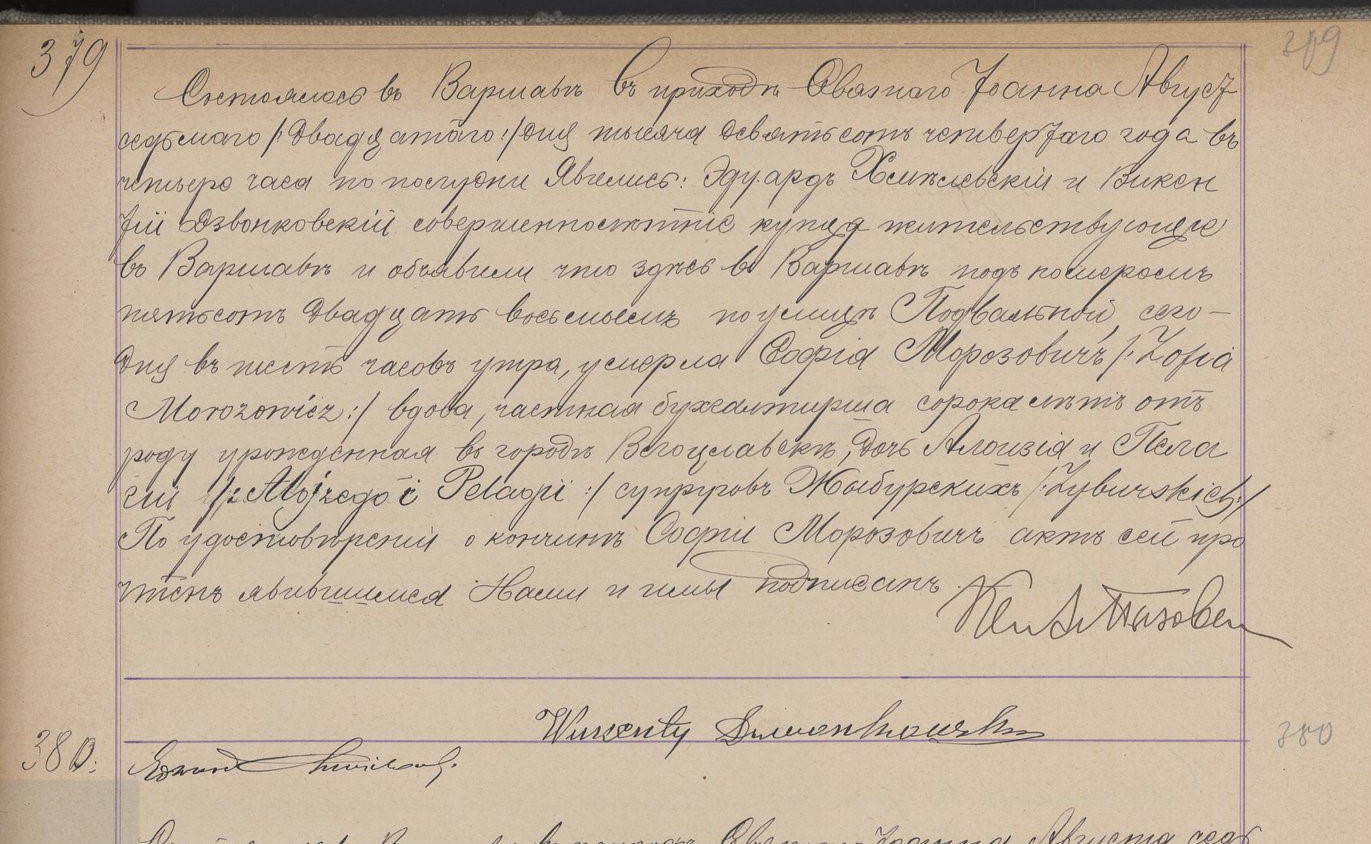 379
309
Состоялось въ Варшавѣ въ приходѣ Святаго Іоанна Август
седьмаго /:двадцатаго:/ дня тысяча девятьсотъ четвертаго года въ
четыре часа по полудни Явились: Эдуардъ Хмѣлевскій и Викен
тій Дзвонковскій совершеннолѣтніе купцы жительствующіе
въ Варшавѣ и объявили что здѣсь въ Варшавѣ подъ номеромъ
пятьсотъ двадцать восьмымъ по улицѣ Подвальной, сего-
дня въ шесть часовъ утра, умерла Софія Морозовичъ /:Zofia
Morozowicz:/ вдова, частная бухгалтерша сорока лѣтъ отъ
роду урожденная въ городѣ Влоцлавскѣ, дочь Алоизія и Пела
гіи /:Alojzego i Pelagii:/ супруговъ Жыбурскихъ /:Żyburskich:/
По удостовѣреніи о кончинѣ Софіи Морозовичъ актъ сей про
чтенъ явившимся Нами и ими подписанъ
Wincenty Dzwonkowski
380.
380
Edward